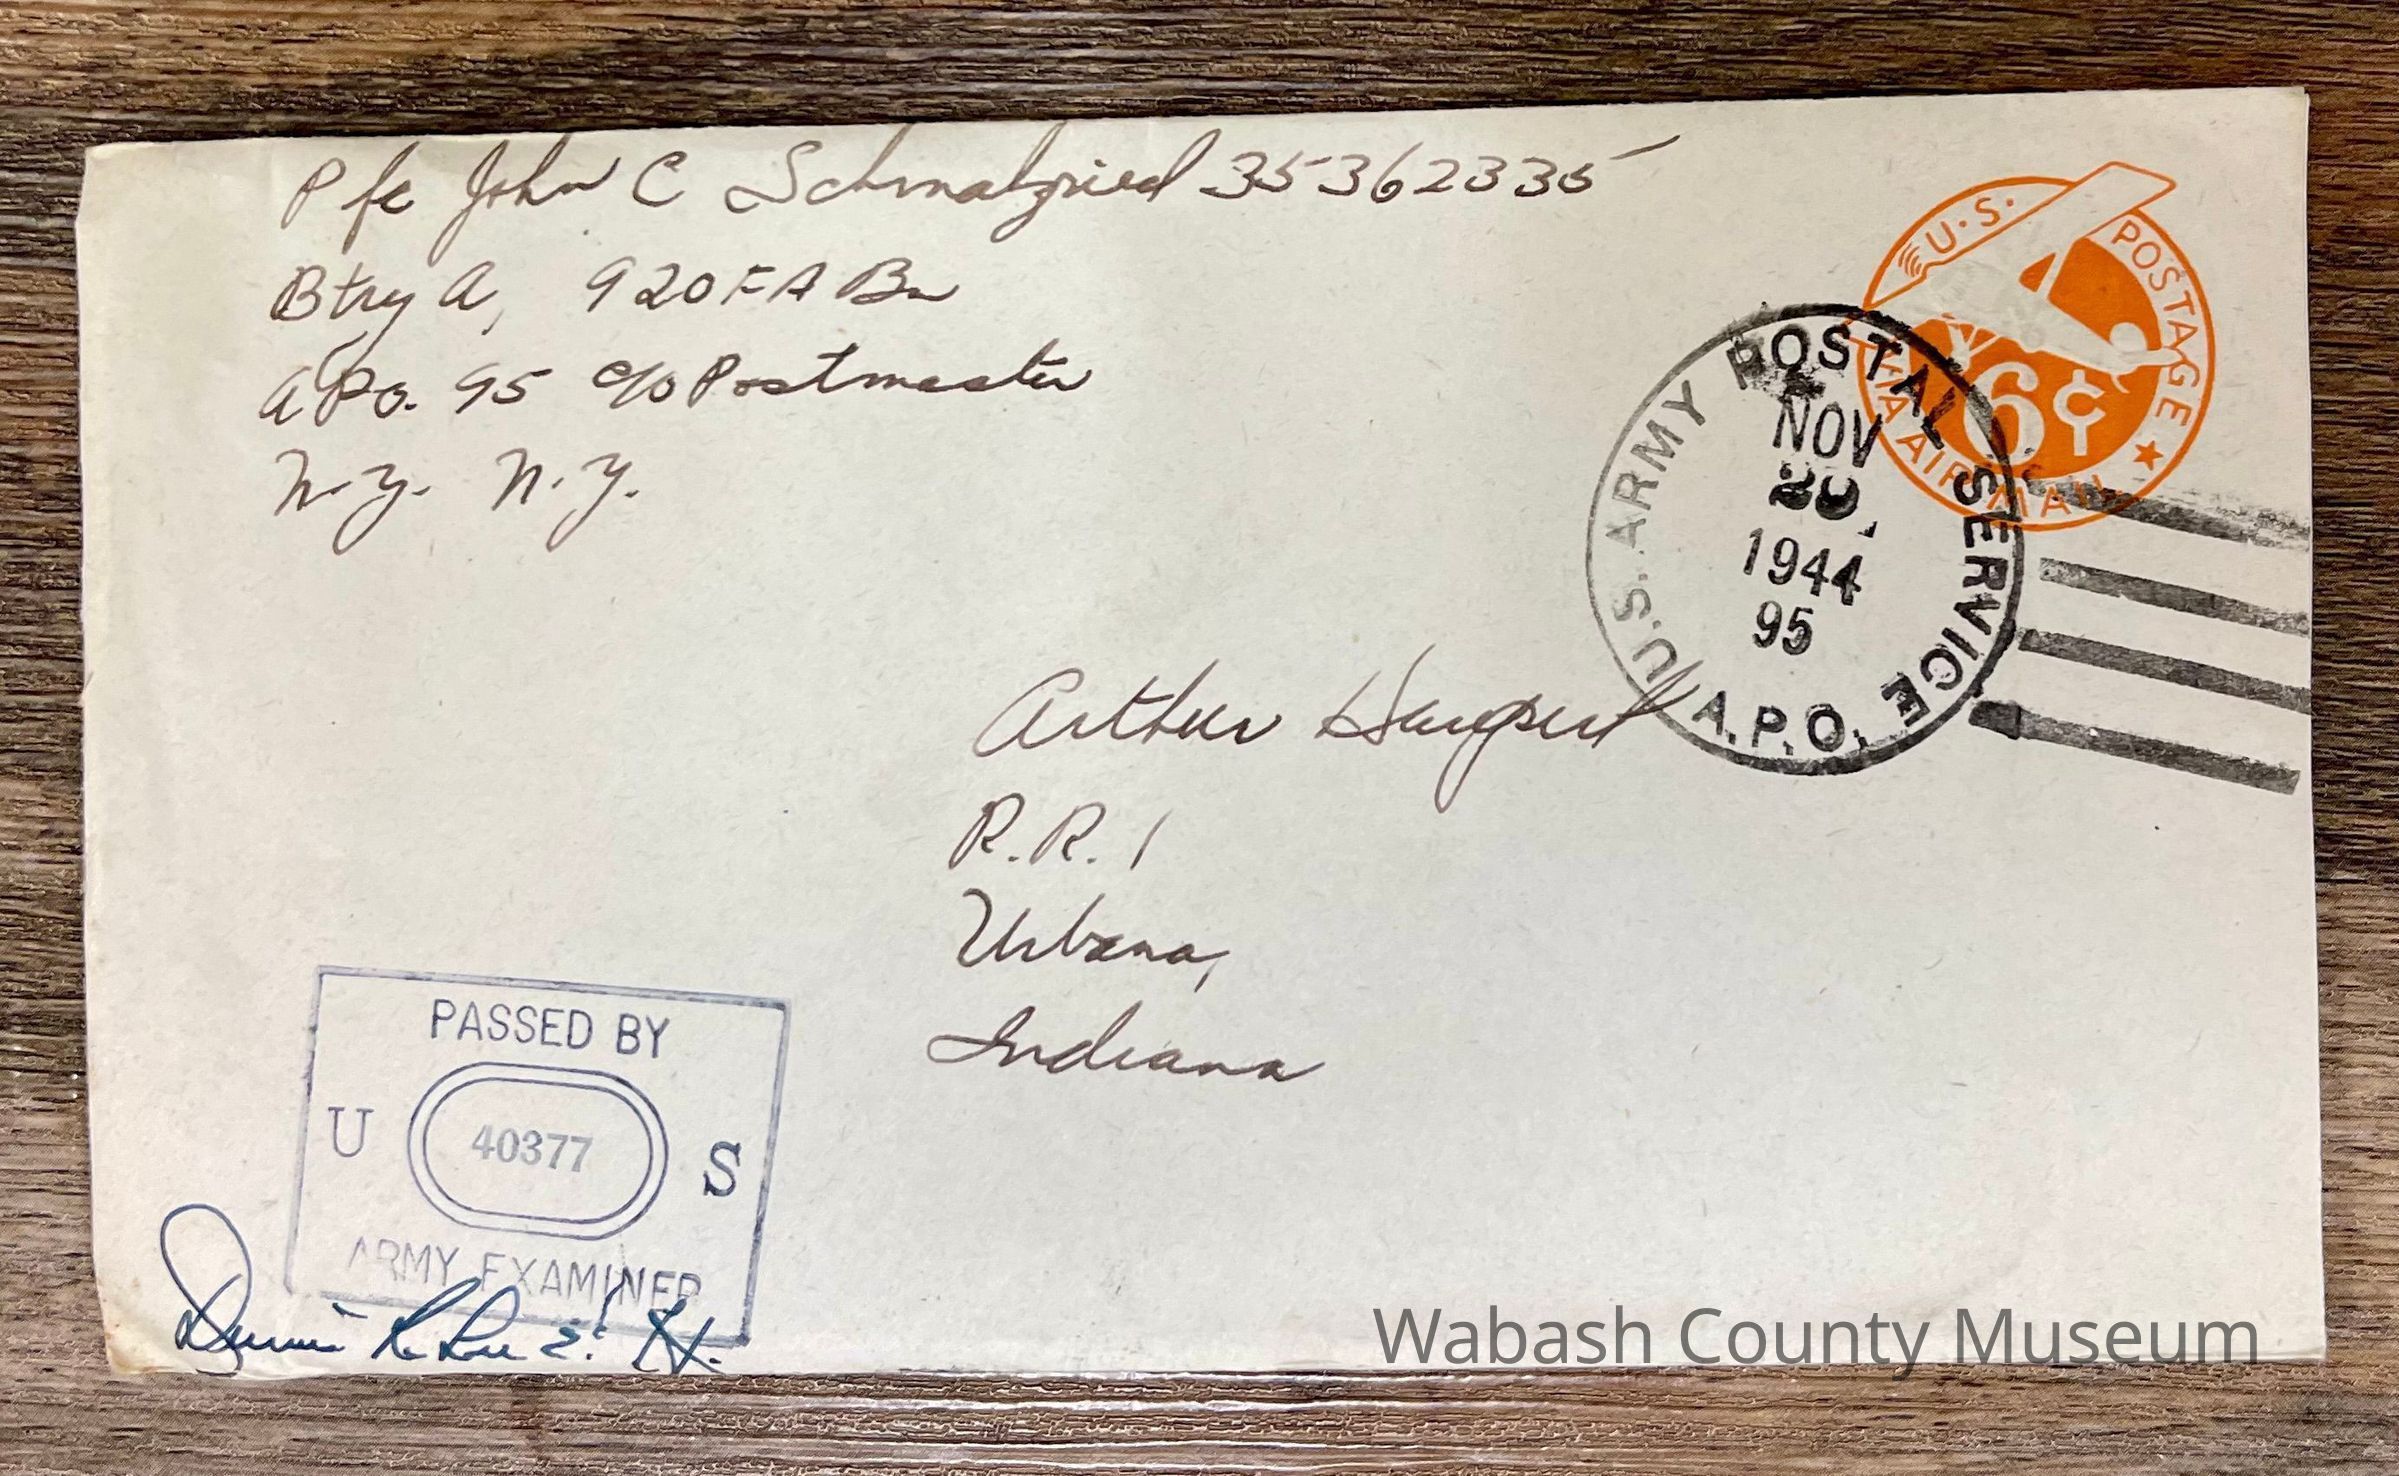 Pfc John C Schmalzried 35362335
Btry A, 920 FA Bn
A.P.O. 95 c/o Postmaster
N.Y. N.Y.
U.S. POSTAGE
VIA AIR MAIL
6¢
U.S. ARMY POSTAL SERVICE
NOV
1944
95
A.P.O.
Arthur
R.R. 1
Urbana,
Indiana
PASSED BY
U 40377 S
ARMY EXAMINER
Wabash County Museum